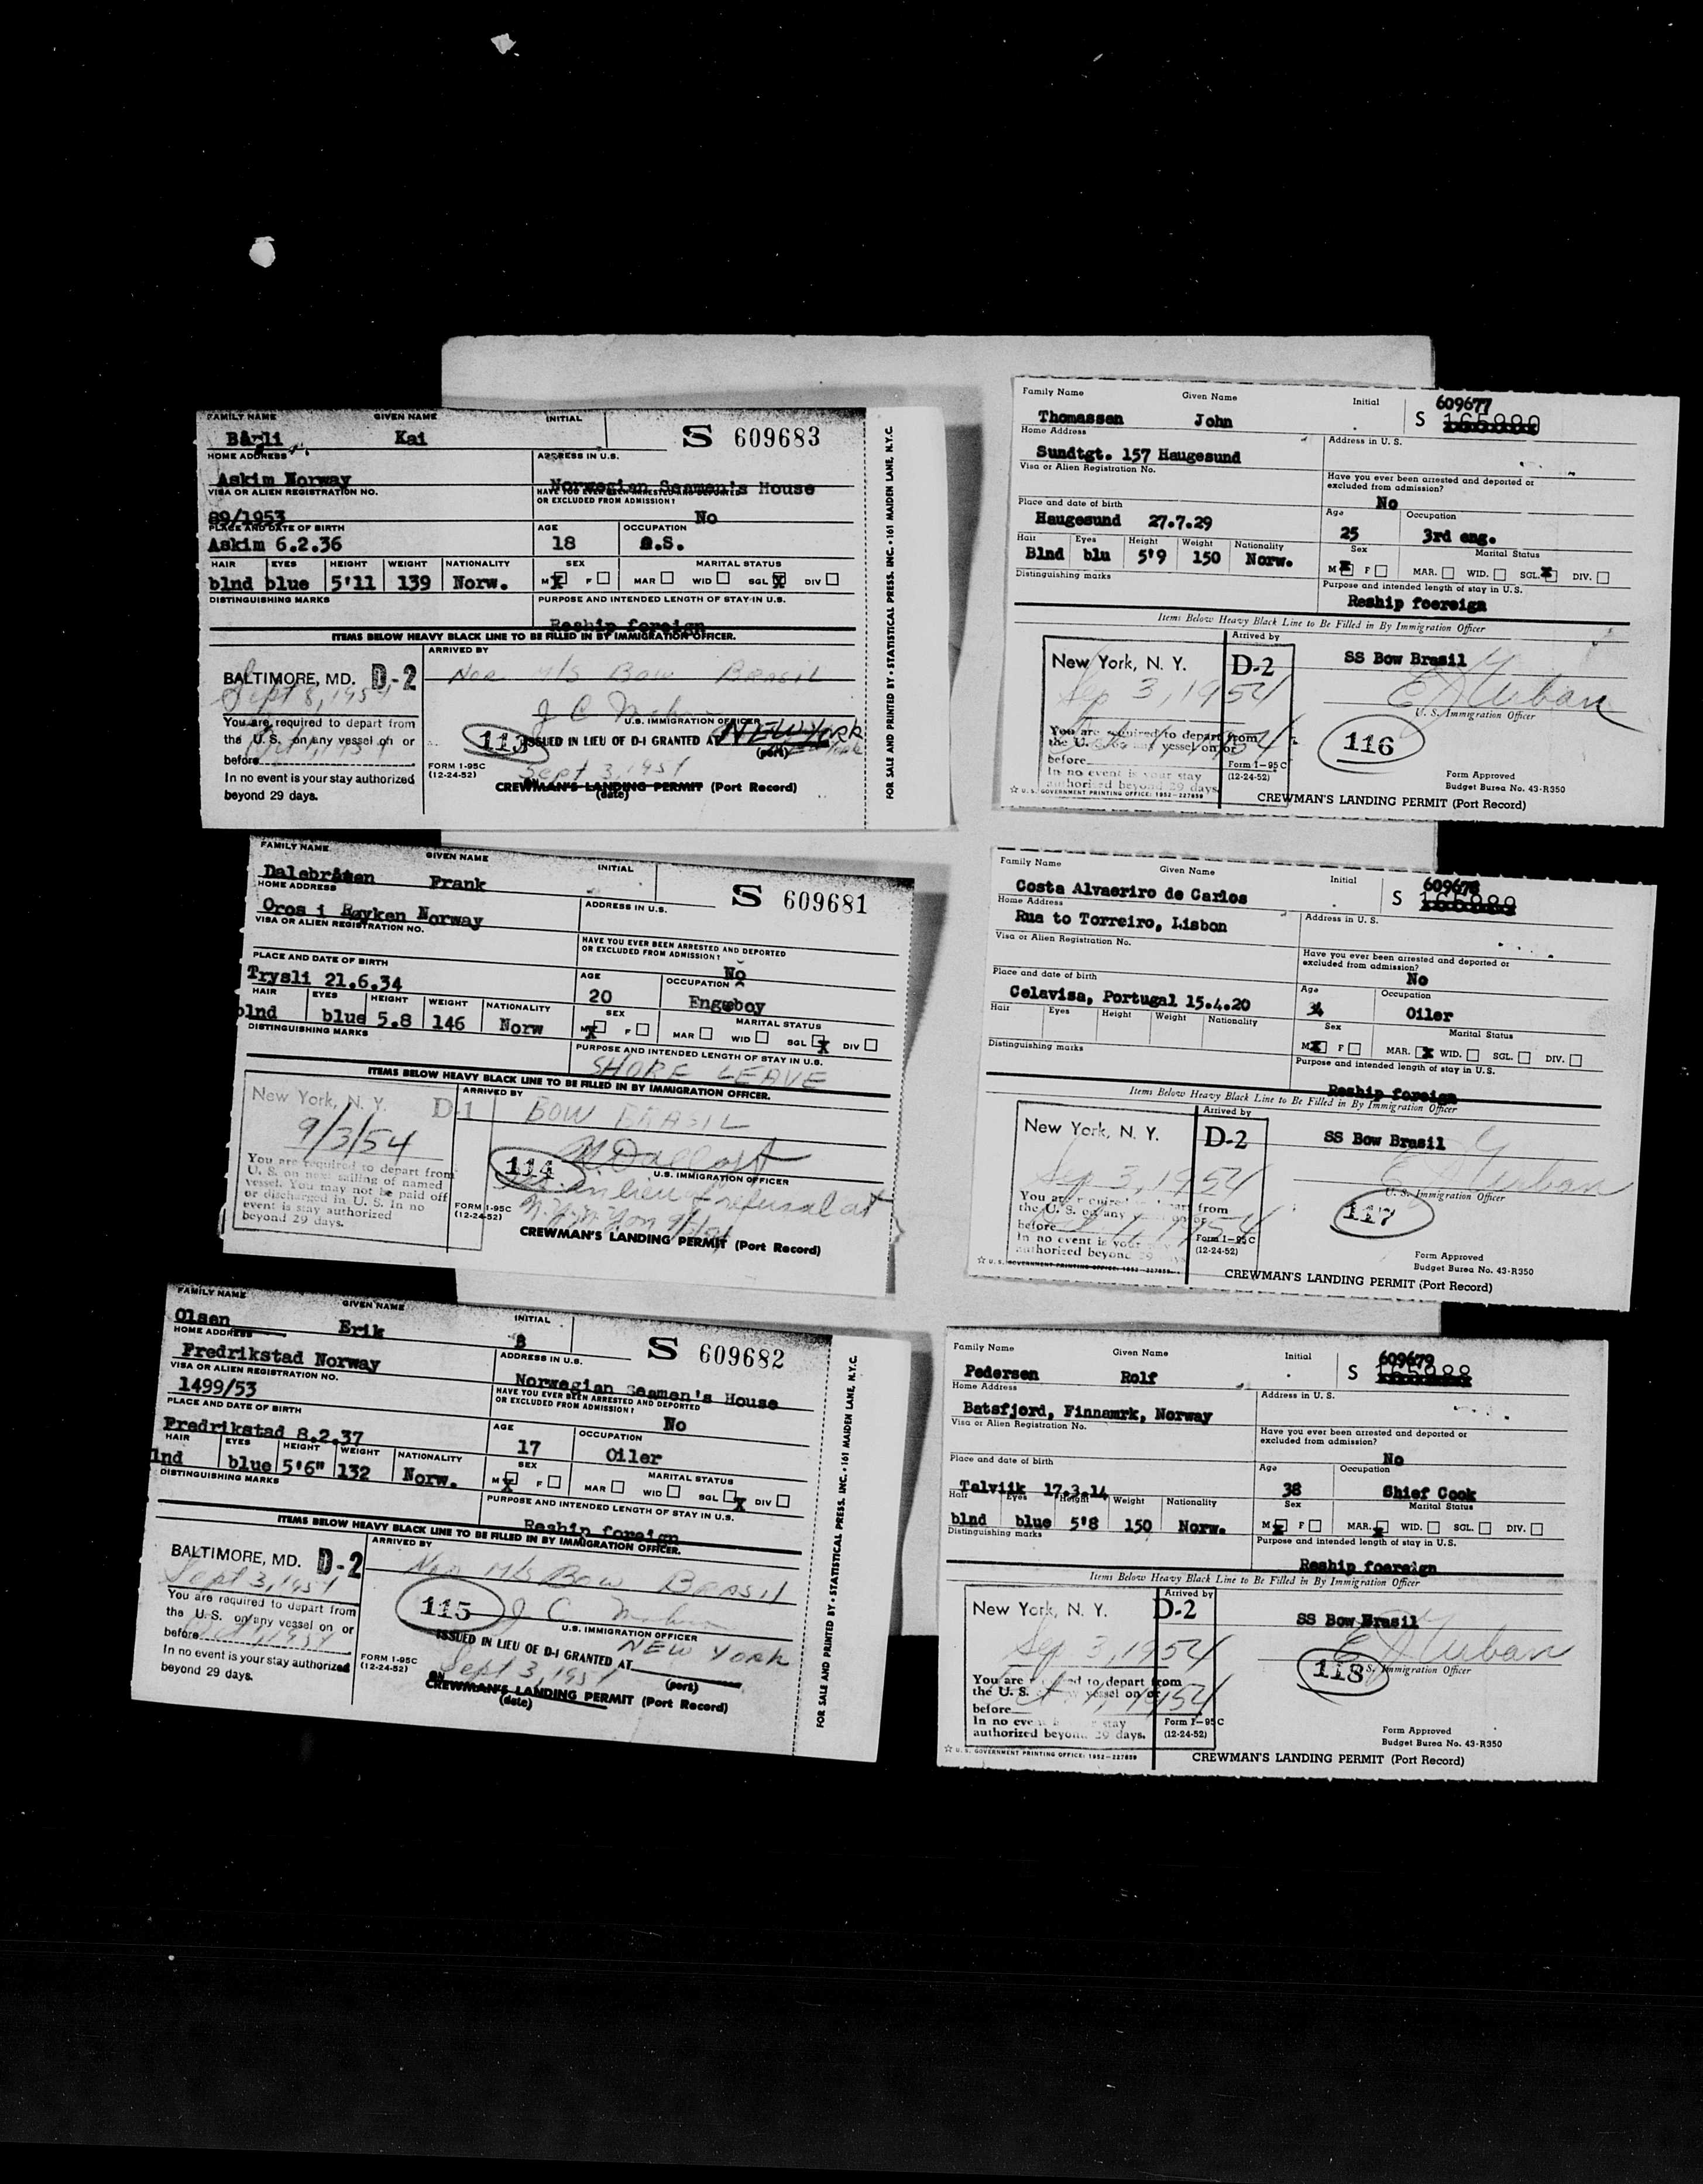 FAMILY NAME GIVEN NAME INITIAL
Bårli Kai S 609683
HOME ADDRESS ADDRESS IN U.S.
Askim Norway Norwegian Seamen's House
VISA OR ALIEN REGISTRATION NO. HAVE YOU EVER BEEN ARRESTED AND DEPORTED
OR EXCLUDED FROM ADMISSION?
89/1953 No
PLACE AND DATE OF BIRTH AGE OCCUPATION
Askim 6.2.36 18 O.S.
HAIR EYES HEIGHT WEIGHT NATIONALITY SEX MARITAL STATUS
blnd blue 5'11 139 Norw. M X F MAR WID SGL X DIV
DISTINGUISHING MARKS PURPOSE AND INTENDED LENGTH OF STAY IN U.S.
Reship foreign
ITEMS BELOW HEAVY BLACK LINE TO BE FILLED IN BY IMMIGRATION OFFICER.
ARRIVED BY
BALTIMORE, MD. D-2 Nor M/S BOW BRASIL
Sept 3, 1954
You are required to depart from U.S. IMMIGRATION OFFICER
the U.S. on any vessel on or 113 ISSUED IN LIEU OF D-I GRANTED AT NEW YORK
before (port)
In no event is your stay authorized FORM I-95C Sept 3, 1954
beyond 29 days. (12-24-52) CREWMAN'S LANDING PERMIT (Port Record)
(date)
FOR SALE AND PRINTED BY • STATISTICAL PRESS. INC. • 161 MAIDEN LANE, N.Y.C.
FAMILY NAME GIVEN NAME INITIAL
Dalebråten Frank S 609681
HOME ADDRESS ADDRESS IN U.S.
Oros i Røyken Norway
VISA OR ALIEN REGISTRATION NO. HAVE YOU EVER BEEN ARRESTED AND DEPORTED
OR EXCLUDED FROM ADMISSION?
No
PLACE AND DATE OF BIRTH AGE OCCUPATION
Trysli 21.6.34 20 Engeboy
HAIR EYES HEIGHT WEIGHT NATIONALITY SEX MARITAL STATUS
blnd blue 5.8 146 Norw M X F MAR WID SGL X DIV
DISTINGUISHING MARKS PURPOSE AND INTENDED LENGTH OF STAY IN U.S.
SHORE LEAVE
ITEMS BELOW HEAVY BLACK LINE TO BE FILLED IN BY IMMIGRATION OFFICER.
New York, N. Y. D-1 ARRIVED BY
BOW BRASIL
9/3/54
You are required to depart from 114
U. S. on next sailing of named U.S. IMMIGRATION OFFICER
vessel. You may not be paid off in lieu of refusal at
or discharged in U. S. In no FORM I-95C
event is stay authorized (12-24-52)
beyond 29 days. CREWMAN'S LANDING PERMIT (Port Record)
FAMILY NAME GIVEN NAME INITIAL
Olsen Erik B S 609682
HOME ADDRESS ADDRESS IN U.S.
Fredrikstad Norway Norwegian Seamen's House
VISA OR ALIEN REGISTRATION NO. HAVE YOU EVER BEEN ARRESTED AND DEPORTED
OR EXCLUDED FROM ADMISSION?
1499/53 No
PLACE AND DATE OF BIRTH AGE OCCUPATION
Fredrikstad 8.2.37 17 Oiler
HAIR EYES HEIGHT WEIGHT NATIONALITY SEX MARITAL STATUS
lnd blue 5'6" 132 Norw. M X F MAR WID SGL X DIV
DISTINGUISHING MARKS PURPOSE AND INTENDED LENGTH OF STAY IN U.S.
Reship foreign
ITEMS BELOW HEAVY BLACK LINE TO BE FILLED IN BY IMMIGRATION OFFICER.
ARRIVED BY
BALTIMORE, MD. D-2 Nor M/S Bow BRASIL
Sept 3, 1954
You are required to depart from 115 J C
the U.S. on any vessel on or U.S. IMMIGRATION OFFICER
before ISSUED IN LIEU OF D-I GRANTED AT NEW YORK
(port)
In no event is your stay authorized FORM I-95C ON Sept 3, 1954
beyond 29 days. (12-24-52) CREWMAN'S LANDING PERMIT (Port Record)
(date)
FOR SALE AND PRINTED BY • STATISTICAL PRESS. INC. • 161 MAIDEN LANE, N.Y.C.
Family Name Given Name Initial
609677
Thomassen John S
Home Address Address in U. S.
Sundtgt. 157 Haugesund
Visa or Alien Registration No. Have you ever been arrested and deported or
excluded from admission?
No
Place and date of birth Age Occupation
Haugesund 27.7.29 25 3rd eng.
Hair Eyes Height Weight Nationality Sex Marital Status
Blnd blu 5'9 150 Norw. M X F MAR. WID. SGL. X DIV.
Distinguishing marks Purpose and intended length of stay in U.S.
Reship foereign
Items Below Heavy Black Line to Be Filled in By Immigration Officer
Arrived by
New York, N. Y. D-2 SS Bow Brasil
Sep 3, 1954
U. S. Immigration Officer
You are required to depart from
the U. S. on any vessel on or 116
before Form I-95C
In no event is your stay (12-24-52) Form Approved
authorized beyond 29 days Budget Burea No. 43-R350
☆ U. S. GOVERNMENT PRINTING OFFICE: 1952—227859 CREWMAN'S LANDING PERMIT (Port Record)
Family Name Given Name Initial
609678
Costa Alvaeriro de Carlos S
Home Address Address in U. S.
Rua to Torreiro, Lisbon
Visa or Alien Registration No. Have you ever been arrested and deported or
excluded from admission?
No
Place and date of birth Age Occupation
Celavisa, Portugal 15.4.20 34 Oiler
Hair Eyes Height Weight Nationality Sex Marital Status
M X F MAR. X WID. SGL. DIV.
Distinguishing marks Purpose and intended length of stay in U.S.
Reship foreign
Items Below Heavy Black Line to Be Filled in By Immigration Officer
Arrived by
New York, N. Y. D-2 SS Bow Brasil
Sep 3, 1954
U. S. Immigration Officer
You are required to depart from
the U. S. on any vessel on or 117
before Form I-95C
In no event is your stay (12-24-52) Form Approved
authorized beyond 29 days Budget Burea No. 43-R350
☆ U. S. GOVERNMENT PRINTING OFFICE: 1952—227859 CREWMAN'S LANDING PERMIT (Port Record)
Family Name Given Name Initial
609679
Pedersen Rolf S
Home Address Address in U. S.
Batsfjord, Finnamrk, Norway
Visa or Alien Registration No. Have you ever been arrested and deported or
excluded from admission?
No
Place and date of birth Age Occupation
Talviik 17.3.14 38 Shief Cook
Hair Eyes Height Weight Nationality Sex Marital Status
blnd blue 5'8 150 Norw. M X F MAR. X WID. SGL. DIV.
Distinguishing marks Purpose and intended length of stay in U.S.
Reship foereign
Items Below Heavy Black Line to Be Filled in By Immigration Officer
Arrived by
New York, N. Y. D-2 SS Bow Brasil
Sep 3, 1954
118 U. S. Immigration Officer
You are required to depart from
the U. S. on any vessel on or
before
In no event is your stay Form I-95C Form Approved
authorized beyond 29 days. (12-24-52) Budget Burea No. 43-R350
☆ U. S. GOVERNMENT PRINTING OFFICE: 1952—227859 CREWMAN'S LANDING PERMIT (Port Record)